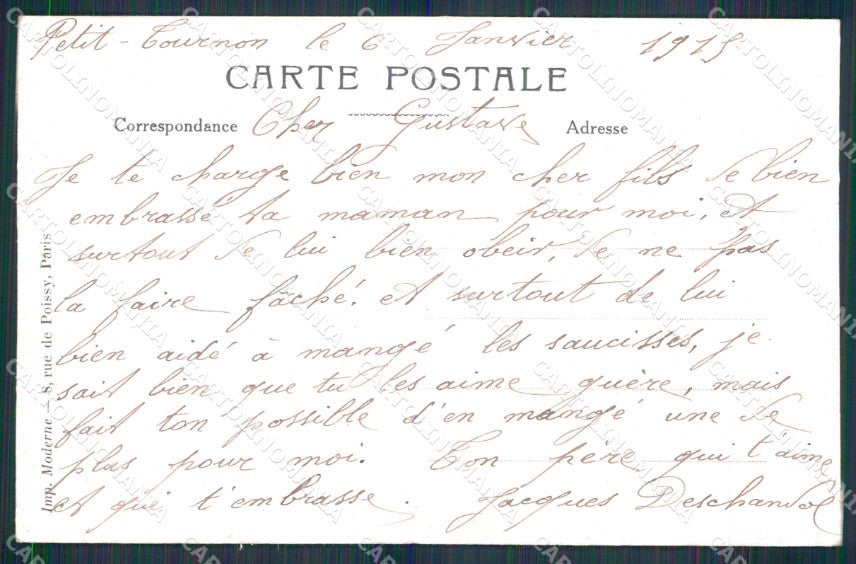 Petit-Tournon le 6 Janvier 1915
CARTE POSTALE
Correspondance Cher Gustave Adresse
Je te charge bien mon cher fils de bien
embrassé ta maman pour moi, et
surtout de lui bien obeir, de ne pas
la faire fâché. et surtout de lui
bien aidé à mangé les saucisses, je
sait bien que tu les aime guère, mais
fait ton possible d'en mangé une de
plus pour moi. Ton père qui t'aime
et qui t'embrasse. Jacques Deschanol
Imp. Moderne — 8, rue de Poissy, Paris
CARTOLINOMANIA